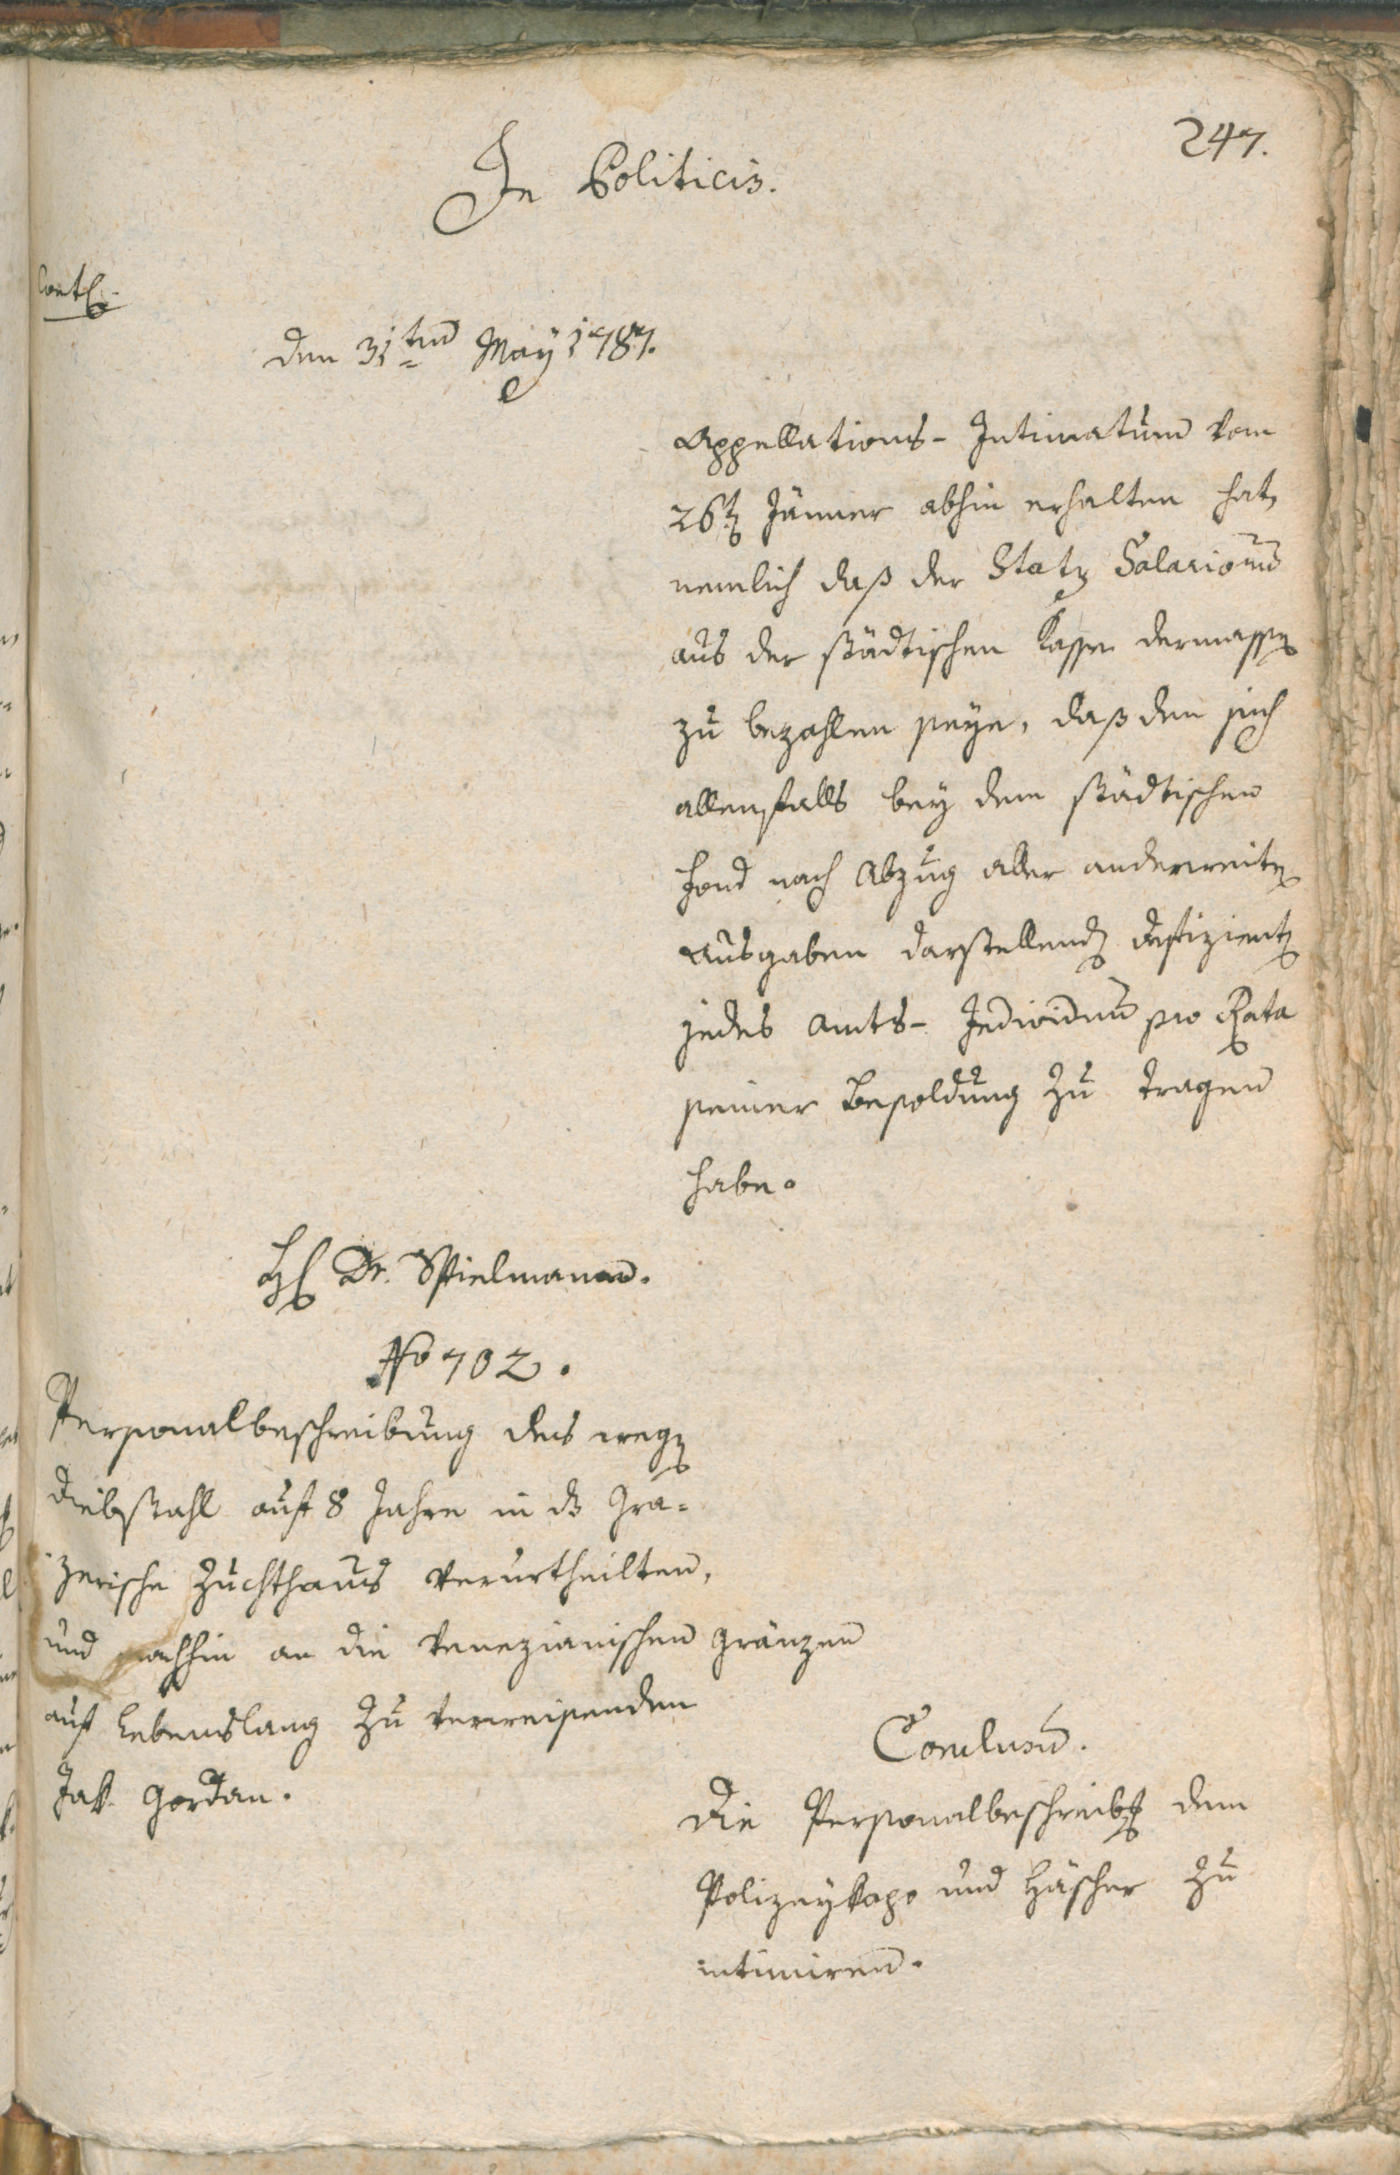 247.
In Politicis.
den 31ten May 1787.
Appellations- Intimatum vom
26t Jänner abhin erhalten hat,
nemlich daß der Status Salariorum
aus der städtischen Kasse dermassen
zu bezahlen seye, daß den sich
allenfalls bey dem städtischen
Fond nach Abzug aller anderweiten
Ausgaben darstellenden Defizienten
jedes Amts- Individuum pro Rata
seiner Besoldung zu tragen
habe.
H Dr. Spielmann.
No 702.
Personalbeschreibung des wegen
Diebstahl auf 8 Jahre in das Gra-
zerische Zuchthaus verurtheilten,
und nachhin an die Venezianischen Gränzen
auf Lebenslang zu verweisenden
Jak. Gordan.
Conclusum.
Die Personalbeschreibung dem
Polizeykapo und Häscher zu
intimiren.